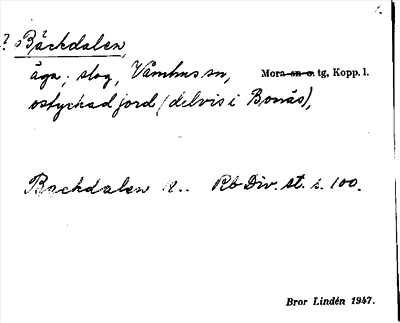 ? Bäckdalen,
äga; slog, Våmhus sn, Mora sn o. tg, Kopp. l.
ostyckad jord (delvis i Bonäs),
Backdalen R.. Rb Div. st. s. 100.
Bror Lindén 1947.